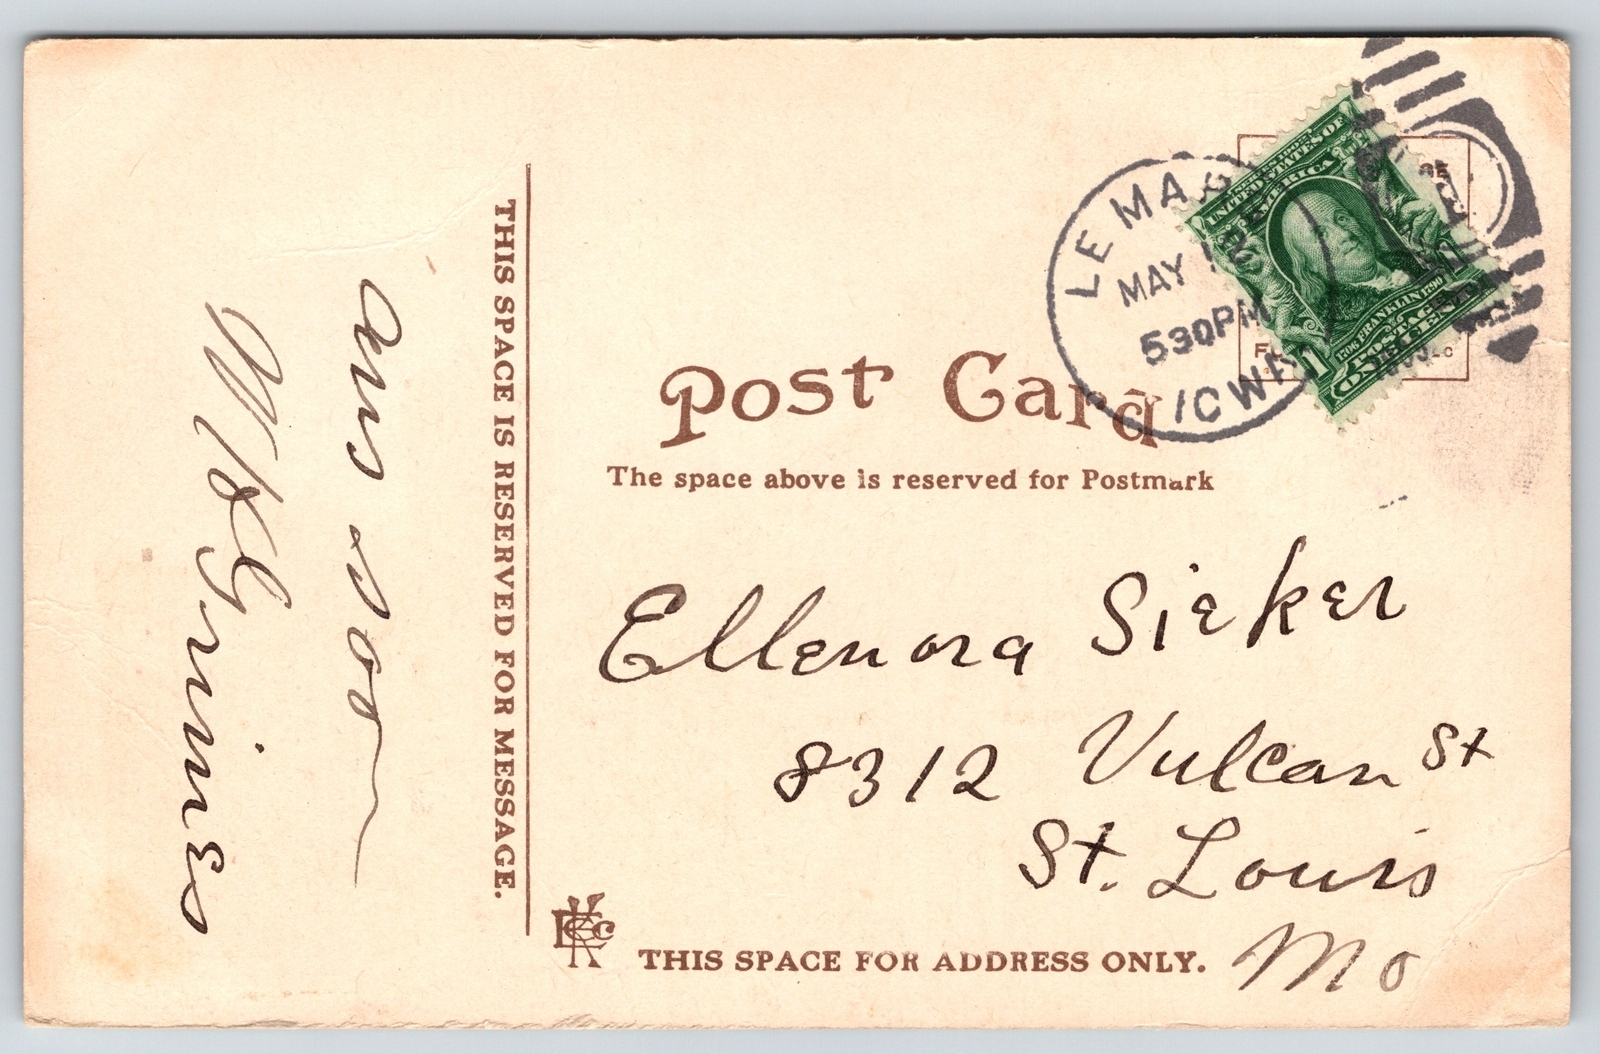 Ans soon
W H Grimes
THIS SPACE IS RESERVED FOR MESSAGE.
LE MARS
MAY
530PM
IOWA
SERIES 1902
UNITED STATES OF
AMERICA
1706 FRANKLIN 1790
POSTAGE
1 ONE CENT
Post Card
The space above is reserved for Postmark
Ellenora Sieker
8312 Vulcan St
St. Louis
Mo
THIS SPACE FOR ADDRESS ONLY.